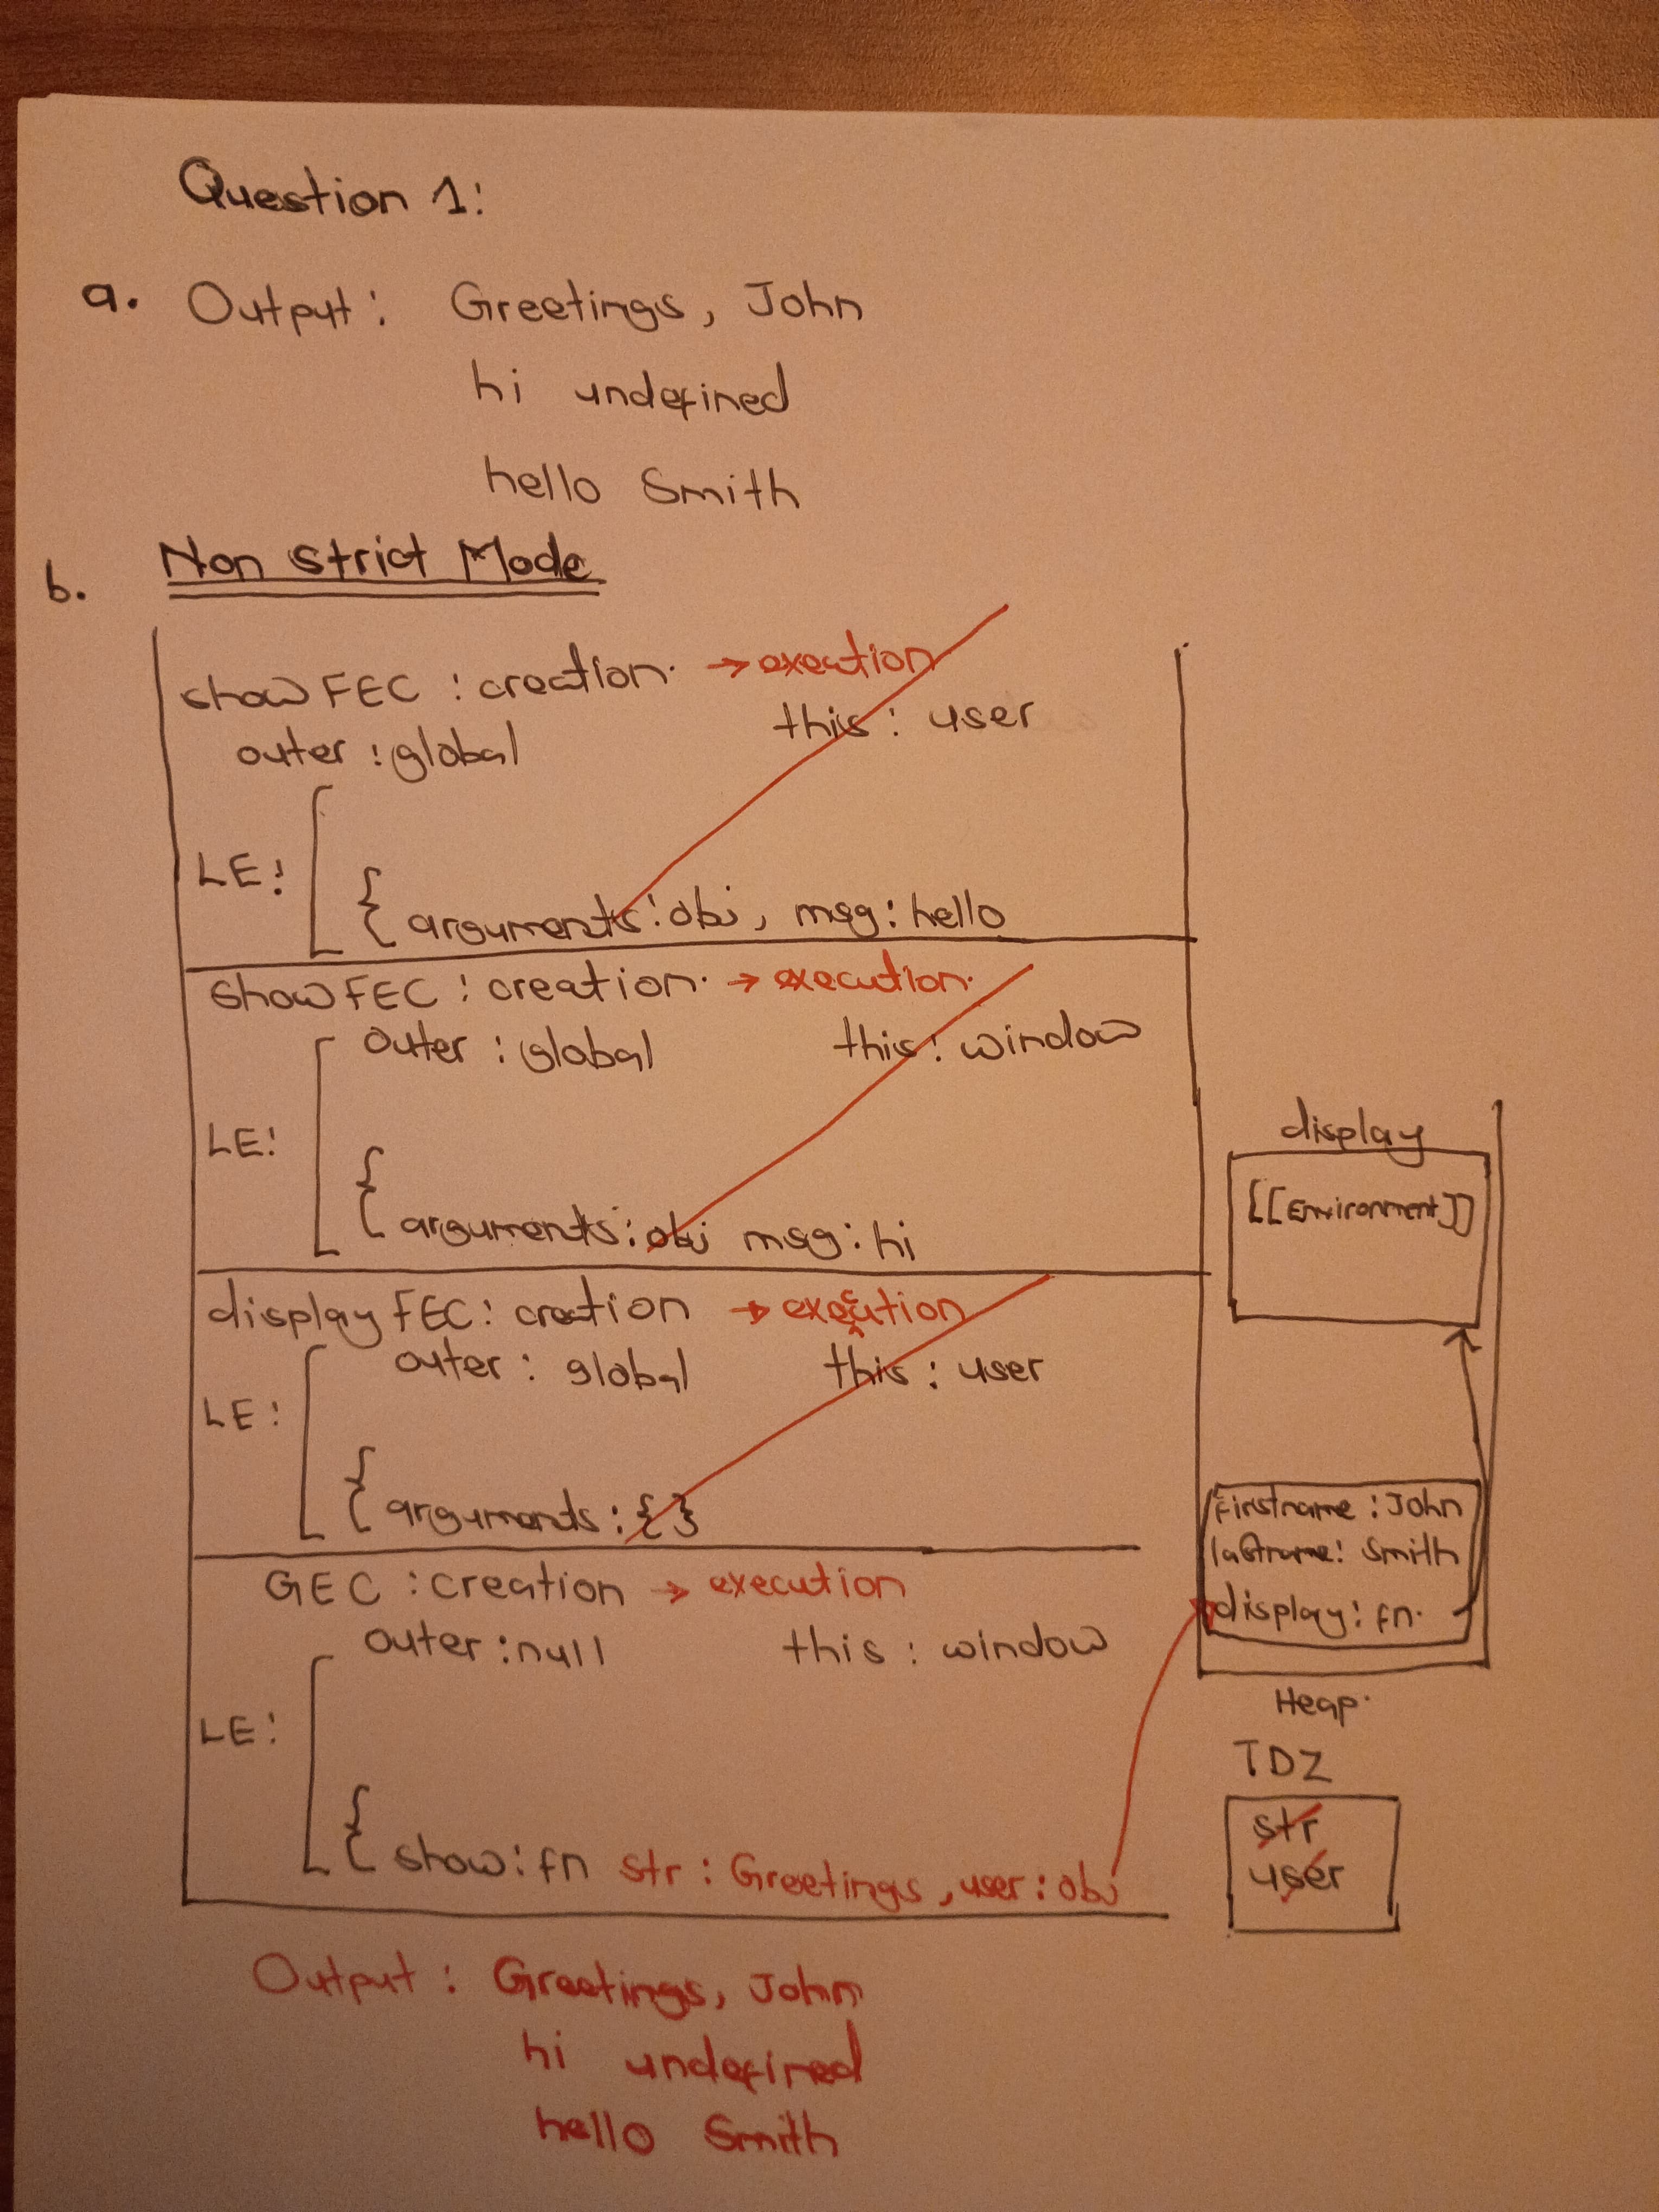 Question 1:
a. Output: Greetings, John
hi undefined
hello Smith
b. Non Strict Mode
show FEC : creation. → execution
outer : global this : user
LE:
{ arguments : obj, msg : hello
show FEC : creation. → execution.
outer : global this : window
LE:
{ arguments : obj msg : hi
display FEC : creation → execution
outer : global this : user
LE:
{ arguments : { }
GEC : creation → execution
outer : null this : window
LE:
{ show : fn str : Greetings, user : obj
display
[[Environment]]
firstname : John
lastname : Smith
display : fn.
Heap.
TDZ
str
user
Output : Greetings, John
hi undefined
hello Smith